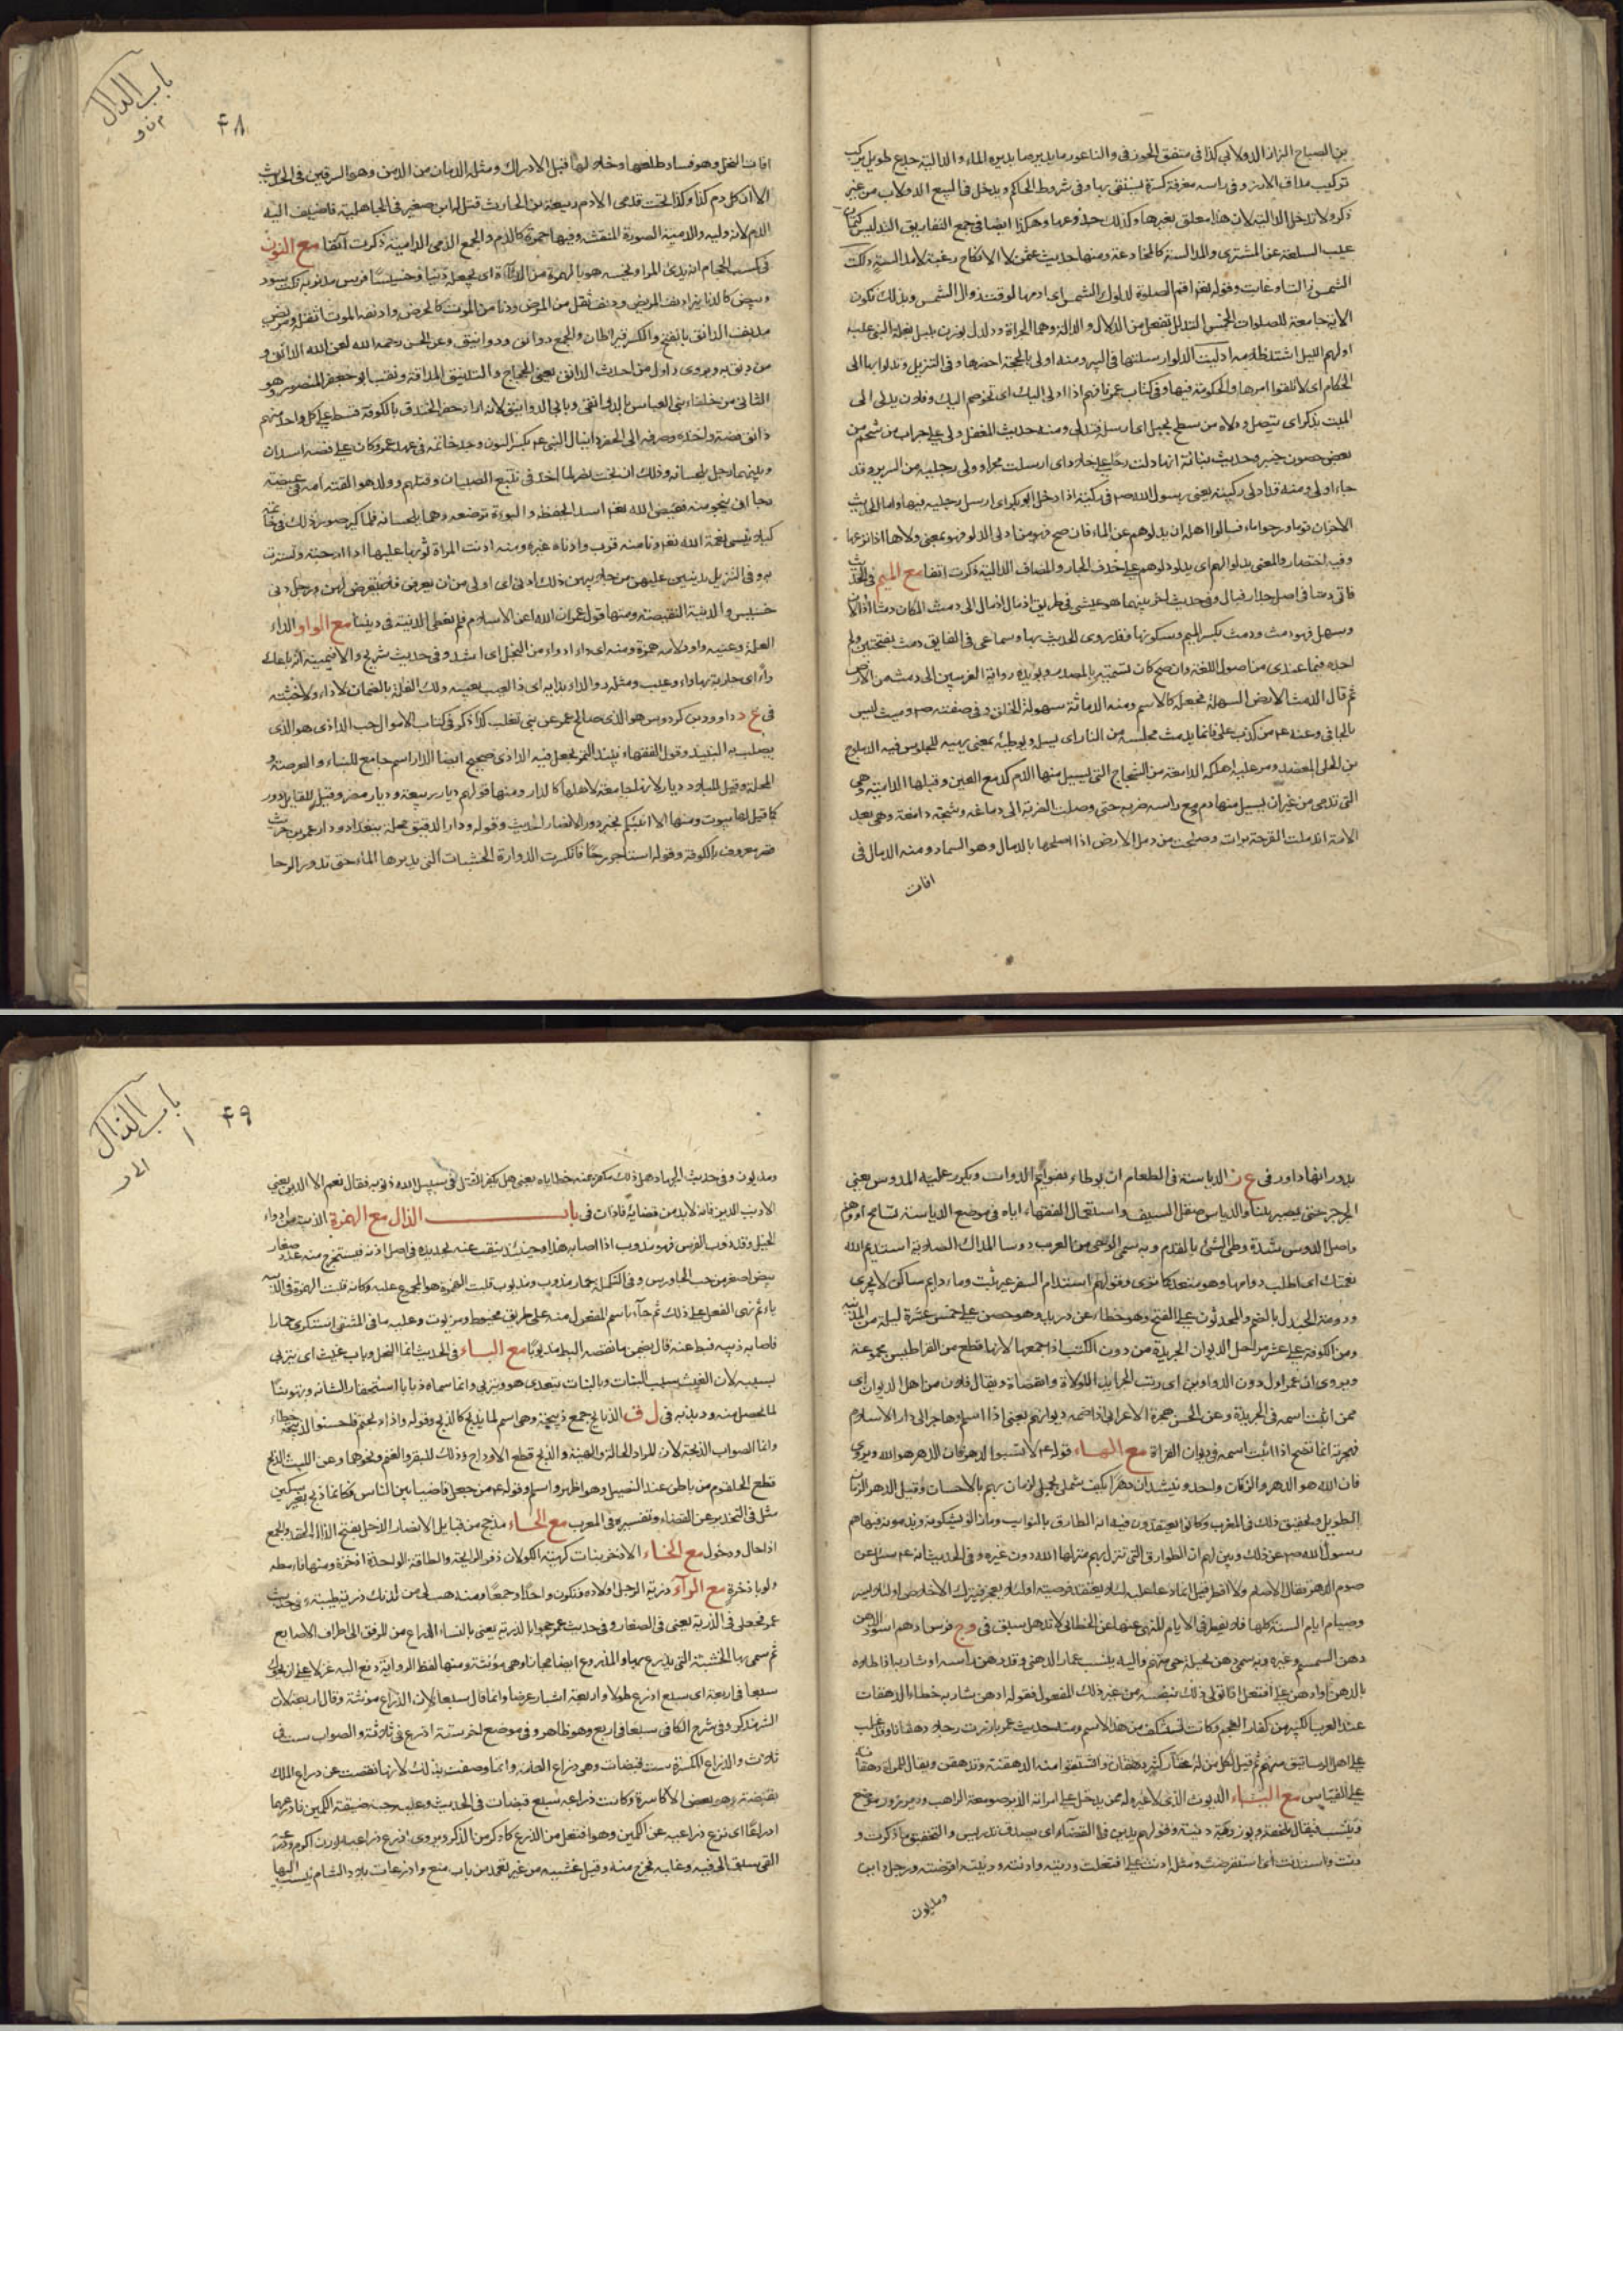 بن الصباح البزاز الدولابي كذا في متفق الجوزقي والناعور ما يديره الماء والدالية جذع طويل يركب
تركيب مداق الارز وفي راسه مغرفة كبيرة يستقى بها وفي شروط الحاكم ويدخل في البيع الدولاب من غير
ذكر ولا تدخل الدالية لان هذا معلق بغيرها وكذلك جذوعها وهكذا ايضا في جمع التفاريق التدليس كتمان
عيب السلعة عن المشتري والمدالسة كالمخادعة ومنها حديث عمر لا الا نكاح رغبة لا مدالسة دلكت
الشمس زالت او غابت وقوله تعالى اقم الصلوة لدلوك الشمس اي ادمها لوقت زوال الشمس وبذلك تكون
الاية جامعة للصلوات الخمس التدلل تفعل من الدلال والدالة وهما الجراة ودلدل بوزن بلبل بغلة النبي عليه
ادلهم الليل اشتد ظلامه ادليت الدلو ارسلتها في البير ومنه ادلى بالحجة احضرها وفي التنزيل وتدلوا بها الى
الحكام اي لا تلقوا امرها والحكومة فيها وفي كتاب عمر فافهم اذا ادلي اليك اي تخوصم اليك وفلان يدلي الى
الميت بذكر اي يتصل ودلاه من سطح بحبل اي ارسله فتدلى ومنه حديث المغفل دلي علي جراب من شحم من
بعض حصون خيبر وحديث بنانة انها دلت رحا علي خلاد اي ارسلت حجرا ودلى رجليه من السرير وقد
جاء ادلى ومنه قد ادلى ركبته يعني رسول الله ص في ركية اذا دخل ابو بكر اي ارسل رجليه فيها واما الحديث
الاخر ان قوما وردوا ماء فسالوا اهله ان يدلوهم على الماء فان صح فهو من ادلى الدلو فهو بمعنى دلاها اذا نزعها
وفيه اختصار والمعنى يدلوا لهم اي يدلو دلوهم على حذف الجار والمضاف الدالية ذكرت انفا مع الميم في الحديث
فاتى دمثا في اصل جدار فبال وفي حديث اخر بينما هو يمشي في طريق اذ مال الى دمث دمث المكان دمثا اذا لان
وسهل فهو دمث ودمث بكسر الميم وسكونها وقد روي الحديث بها وسماعي في الفايق دمث بفتحتين ولم
اجده فيما عندي من اصول اللغة وان صح كان تسمية بالمصدر ويؤيده رواية الغريبين الى دمث من الارض
ثم قال الدمث الارض السهلة فجعله كالاسم ومنه الدماثة سهولة الخلق وفي صفته ص دميث ليس
بالجافي وعنه ع من كذب علي فانما يدمث مجلسه من النار اي يسهل ويوطئ بمعنى يهيئه للجلوس فيه الدملج
من الحلي المعضد ومر عليه اهلكه الدامعة من الشجاج التي يسيل منها الدم كدمع العين وقبلها الدامية وهي
التي تدمى من غير ان يسيل منها دم دمغ راسه ضربه حتى وصلت الضربة الى دماغه وشجة دامغة وهي بعد
الامة اندملت القرحة برات وصلحت من دمل الارض اذا اصلحها بالدمال وهو السماد ومنه الدمال في
افات
باب الدال
م ن و
۴۸
افات النخل وهو فساد طلعها وخلالها قبل الادراك ومثله الدمان من الدمن وهو السرقين في الحديث
الا ان كل دم كذا وكذا تحت قدمي الا دم ربيعة بن الحارث قتل له ابن صغير في الجاهلية فاضيف اليه
الدم لانه وليه والدمية الصورة المنقشة وفيها حمرة كالدم والجمع الدمى الدامية ذكرت آنفا مع النون
في كسب الحجام انه يدنئ المرا ويخسه هو بالهمزة من الدناءة اي يجعله دنيا وخسيسا فرس مدنر به نكت سود
وبيض كالدنانير ادنف المريض ودنف ثقل من المرض ودنا من الموت كالحرض وادنفه الموت اثقله ومريض
مدنف الدانق بالفتح والكسر قيراطان والجمع دوانق ودوانيق وعن الحسن رحمه الله لعن الله الدانق و
من دنق به ويروى واول من احدث الدانق يعني الحجاج والتدنيق المداقة ولقب ابو جعفر المنصور وهو
الثاني من خلفاء بني العباس بالدوانقي وبابي الدوانيق لانه اراد حفر الخندق بالكوفة قسط علي كل واحد منهم
دانق فضة واخذه وصرفه الى الحفر دانيال النبي ع بكسر النون وجد خاتمه في عهد عمر وكان علي فصه اسدان
وبينهما رجل يلحسانه وذلك ان بخت نصر لما اخذ في تتبع الصبيان وقتلهم وولد هو القته امه في غيضة
رجا ان ينجو منه فقيض الله تعالى اسدا يحفظه ولبوة ترضعه وهما يلحسانه فلما كبر صور ذلك في خاتمه
كيلا ينسى نعمة الله تعالى دنا منه قرب وادناه غيره ومنه ادنت المراة ثوبها عليها اذا ارخته وتسترت
به وفي التنزيل يدنين عليهن من جلابيبهن ذلك ادنى اي اولى من ان يعرفن فلا يتعرض لهن ورجل دني
خسيس والدنية النقيصة ومنها قول عمر ان الله اعز الاسلام فلم نعطي الدنية في ديننا مع الواو الداء
العلة وعينه واو ولامه همزة ومنه اي داء ادوا من البخل اي اشد وفي حديث شريح والا فيمينه انه ما باعك
داء اي جارية بها داء وعيب ومثله رد الداء بدايه اي ذا العيب بعيبه ولك الغلة بالضمان لا داء ولا خبثة
في ع د داود بن كردوس هو الذي صالح عمر عن بني تغلب كذا ذكر في كتاب الاموال حب الداذي هو الذي
يصلب به النبيذ وقول الفقهاء نبيذ التمر يجعل فيه الداذي صحيح ايضا الدار اسم جامع للبناء والعرصة و
المحلة وقيل للبلاد ديار لانها جامعة لاهلها كالدار ومنها قولهم ديار ربيعة وديار مضر وقيل للقبايل دور
كما قيل لها بيوت ومنها الا انبئكم بخير دور الانصار الحديث وقوله ودار الدقيق محلة ببغداد ودار عمرو بن حريث
قصر معروف بالكوفة وقوله استاجر رحا فانكسرت الدوارة الخشبات التي يديرها الماء حتى تدور الرحا
بدورانها داور في ع ن الدياسة في الطعام ان يوطاء بقوائم الدواب ويكرر عليه المدوس يعني
الجرجر حتى يصير تبنا والدياس صقل السيف واستعمال الفقهاء اياه في موضع الدياسة تسامح او وهم
واصل الدوس شدة وطئ الشئ بالقدم وبه سمي ابو حي من العرب دوسا المداك الصلاية استديم الله
نعمتك اي اطلب دوامها وهو متعد كما ترى وقولهم استدام السفر غير ثبت وماء دايم ساكن لا يجري
ودومة الجندل بالضم والمحدثون علي الفتح وهو خطاء عن دريد وهو حصن علي خمس عشرة ليلة من المدينة
ومن الكوفة علي عشر مراحل الديوان الجريدة من دون الكتب اذا جمعها لانها قطع من القراطيس مجموعة
ويروى ان عمر اول من دون الدواوين اي رتب الجرايد للولاة والقضاة ويقال فلان من اهل الديوان اي
ممن اثبت اسمه في الجريدة وعن الحسن هجرة الاعرابي اذا ضمه ديوانهم يعني اذا اسلم وهاجر الى دار الاسلام
فهجرته انما تصح اذا اثبت اسمه في ديوان الغزاة مع الهاء قوله ع لا تسبوا الدهر فان الدهر هو الله ويروى
فان الله هو الدهر والزمان واحد وينشد ان دهرا يلف شملي بجمل لزمان يهم بالاحسان وقيل الدهر الزمان
الطويل وتحقيق ذلك في المغرب وكانوا يعتقدون فيه انه الطارق بالنوايب وما زالوا يشكونه ويذمونه فنهاهم
رسول الله ص عن ذلك وبين لهم ان الطوارق التي تنزل بهم منزلها الله دون غيره وفي الحديث انه ع سئل عن
صوم الدهر فقال لا صام ولا افطر قيل انما دعا عليه لئلا يعتقد فرضيته او لئلا يعجز فيترك الاخلاص او لئلا يسرد
وصيام ايام السنة كلها فلا يفطر في الايام المنهي عنها عن الخطابي لا تدهل سبق في وج فرس ادهم اسود الدهن
دهن السمسم وغيره وبه سمي دهن بجيلة حي منهم واليه ينسب عمار الدهني وقد دهن راسه او شاربه اذا طلاه
بالدهن وادهن علي افتعل اذا تولى ذلك بنفسه من غير ذكر المفعول فقوله ادهن شاربه خطاء الدهقان
عند العرب الكبير من كفار العجم وكانت تستنكف من هذا الاسم ومنه حديث عمر بارزت رجلا دهقانا وقد غلب
علي اهل الرساتيق منهم ثم قيل لكل من له عقار كثير دهقان واشتقوا منه الدهقنة وتدهقن ويقال للمراة دهقانة
علي القياس مع الياء الديوث الذي لا غيرة له ممن يدخل علي امراته الدير صومعة الراهب ودير زور موضع
دنت واستدنت اي استقرضت ومثله ادنت علي افتعلت ودينه وادنته ودينته اقرضته ورجل داين
ومديون
باب الذال
۱ الى ر
۴۹
ومديون وفي حديث الجهاد هل ذلك مكفر عنه خطاياه يعني هل يكفر القتل في سبيل الله ذنوبه فقال نعم الا الدين يعني
الا ذنب الدين فانه لابد من قضايه فاذان في باب الذال مع الهمزة الذئبة من ادواء
الخيل وقد ذئب الفرس فهو مذؤب اذا اصابه هذا وحينئذ ينقب عنه بحديدة في اصل اذنه فيستخرج منه غدد صغار
بيض اصغر من حب الجاورس وفي التكملة حمار مذؤب ومذيوب قلت الهمزة هو المجمع عليه وكانه قلبت الهمزة في الذئبة
ياء ثم بنى الفعل علي ذلك ثم جاء باسم المفعول منه علي طريق مخيوط ومزيوت وعليه ما في المنتقى استكرى حمارا
فاصابه ذيبه فبط عنه قال يضمن ما نقصه البط مذيوبا مع الباء في الحديث انما النحل ذباب غيث اي يتربى
بسببه لان الغيث سبب النبات وبالنبات يتغذى هو ويتربى وانما سماه ذبابا استحقارا لشانه وتهوينا
لما يحصل منه وذبذبه في ل ق الذبايح جمع ذبيحة وهي اسم لما يذبح كالذبح وقوله واذا ذبحتم فاحسنوا الذبيحة خطاء
وانما الصواب الذبحة لان المراد الحالة والهيئة والذبح قطع الاوداج وذلك للبقر والغنم ونحوهما وعن الليث الذبح
قطع الحلقوم من باطن عند النصيل وهو اظهر واسلم وقوله ع من جعل قاضيا بين الناس فكانما ذبح بغير سكين
مثل في التحذير عن القضاء وتفسيره في المعرب مع الحاء مذحج من قبايل الانصار الذحل بفتح الذال الحقد والجمع
اذحال وذحول مع الخاء الاذخر نبات كهيئة الكولان ذفر الرايحة والطاقة الواحدة اذخرة ومنها فاماطه
ولو باذخرة مع الراء ذرية الرجل اولاده وتكون واحدا وجمعا ومنه هب لي من لدنك ذرية طيبة وفي حديث
عمر فجعلني في الذرية يعني في الصغار وفي حديث عمر حجوا بالذرية يعني بالنساء الذراع من المرفق الى اطراف الاصابع
ثم سمي بها الخشبة التي يذرع بها والمذروع ايضا مجازا وهي مؤنثة ومنها لفظ الرواية دفع اليه غزلا علي ان يحوك
سبعا في اربعة اي سبع اذرع طولا واربعة اشبار عرضا وانما قال سبعا لان الذراع مونثة وقال اربعة لان
الشبر مذكر وفي شرح الكافي سبعا في اربع وهو ظاهر وفي موضع اخر ستة اذرع في ثلاثة والصواب ست في
ثلاث والذراع المكسرة ست قبضات وهي ذراع العامة وانما وصفت بذلك لانها نقصت عن ذراع الملك
بقبضة وهو بعض الاكاسرة وكانت ذراعه سبع قبضات في الحديث وعليه جبة ضيقة الكمين فادرعهما
ادراعا اي نزع ذراعيه عن الكمين وهو افتعل من الذرع كادكر من الذكر ويروى اذرع ذراعيه بوزن اكرم وذرعه
القئ سبق الى فيه وغلبه فخرج منه وقيل غشيه من غير تعمد من باب منع واذرعات بلد بالشام ينسب اليها